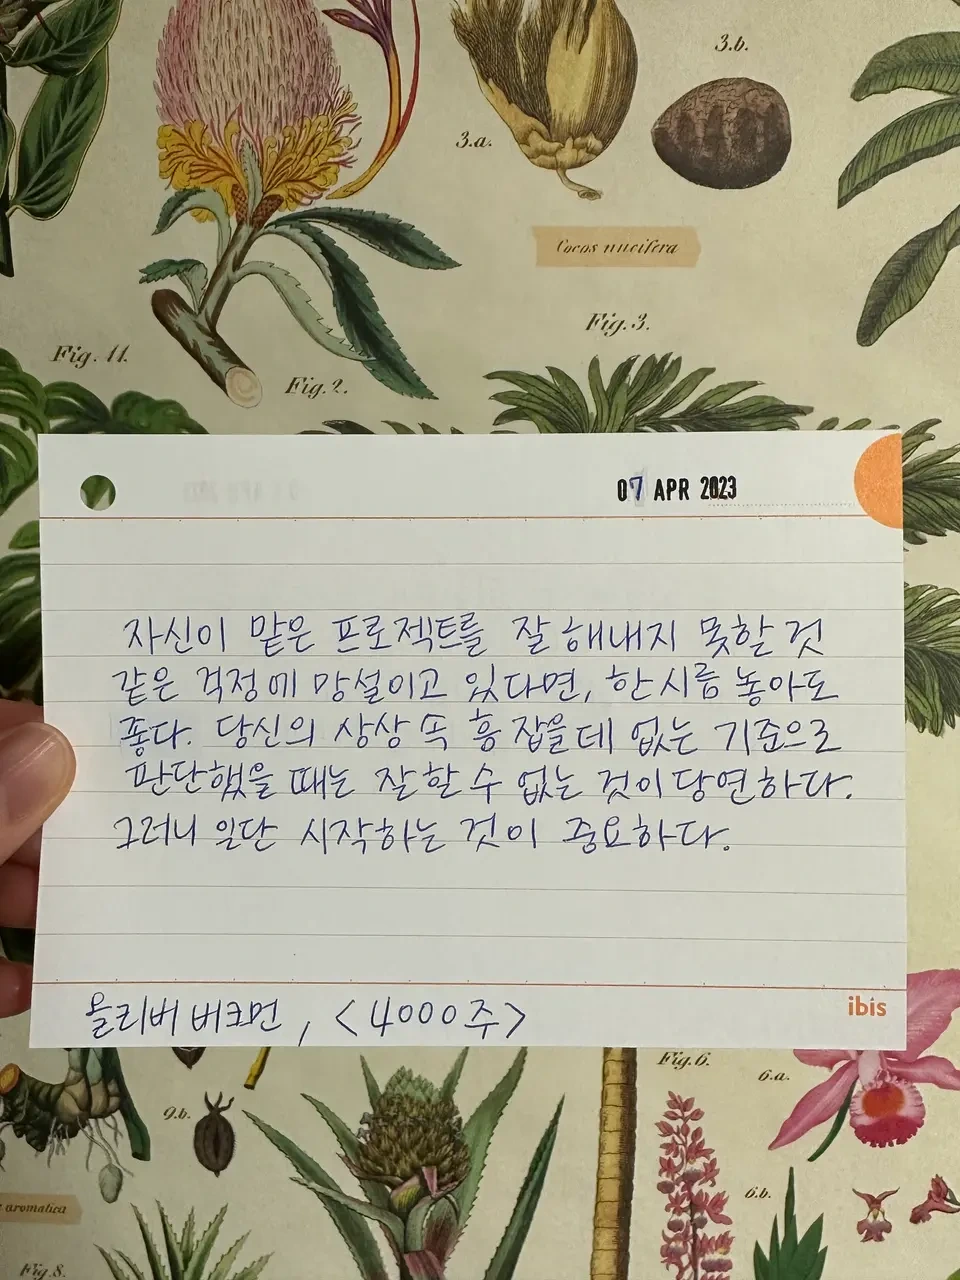 3.b.
3.a.
Cocos nucifera
Fig. 3.
Fig. 11.
Fig. 2.
07 APR 2023
자신이 맡은 프로젝트를 잘 해내지 못할 것
같은 걱정에 망설이고 있다면, 한시름 놓아도
좋다. 당신의 상상 속 흠 잡을데 없는 기준으로
판단했을 때는 잘할 수 없는 것이 당연하다.
그러니 일단 시작하는 것이 중요하다.
올리버 버크먼, <4000주>
ibis
Fig. 6.
6.a.
9.b.
6.b.
aromatica
Fig. 8.